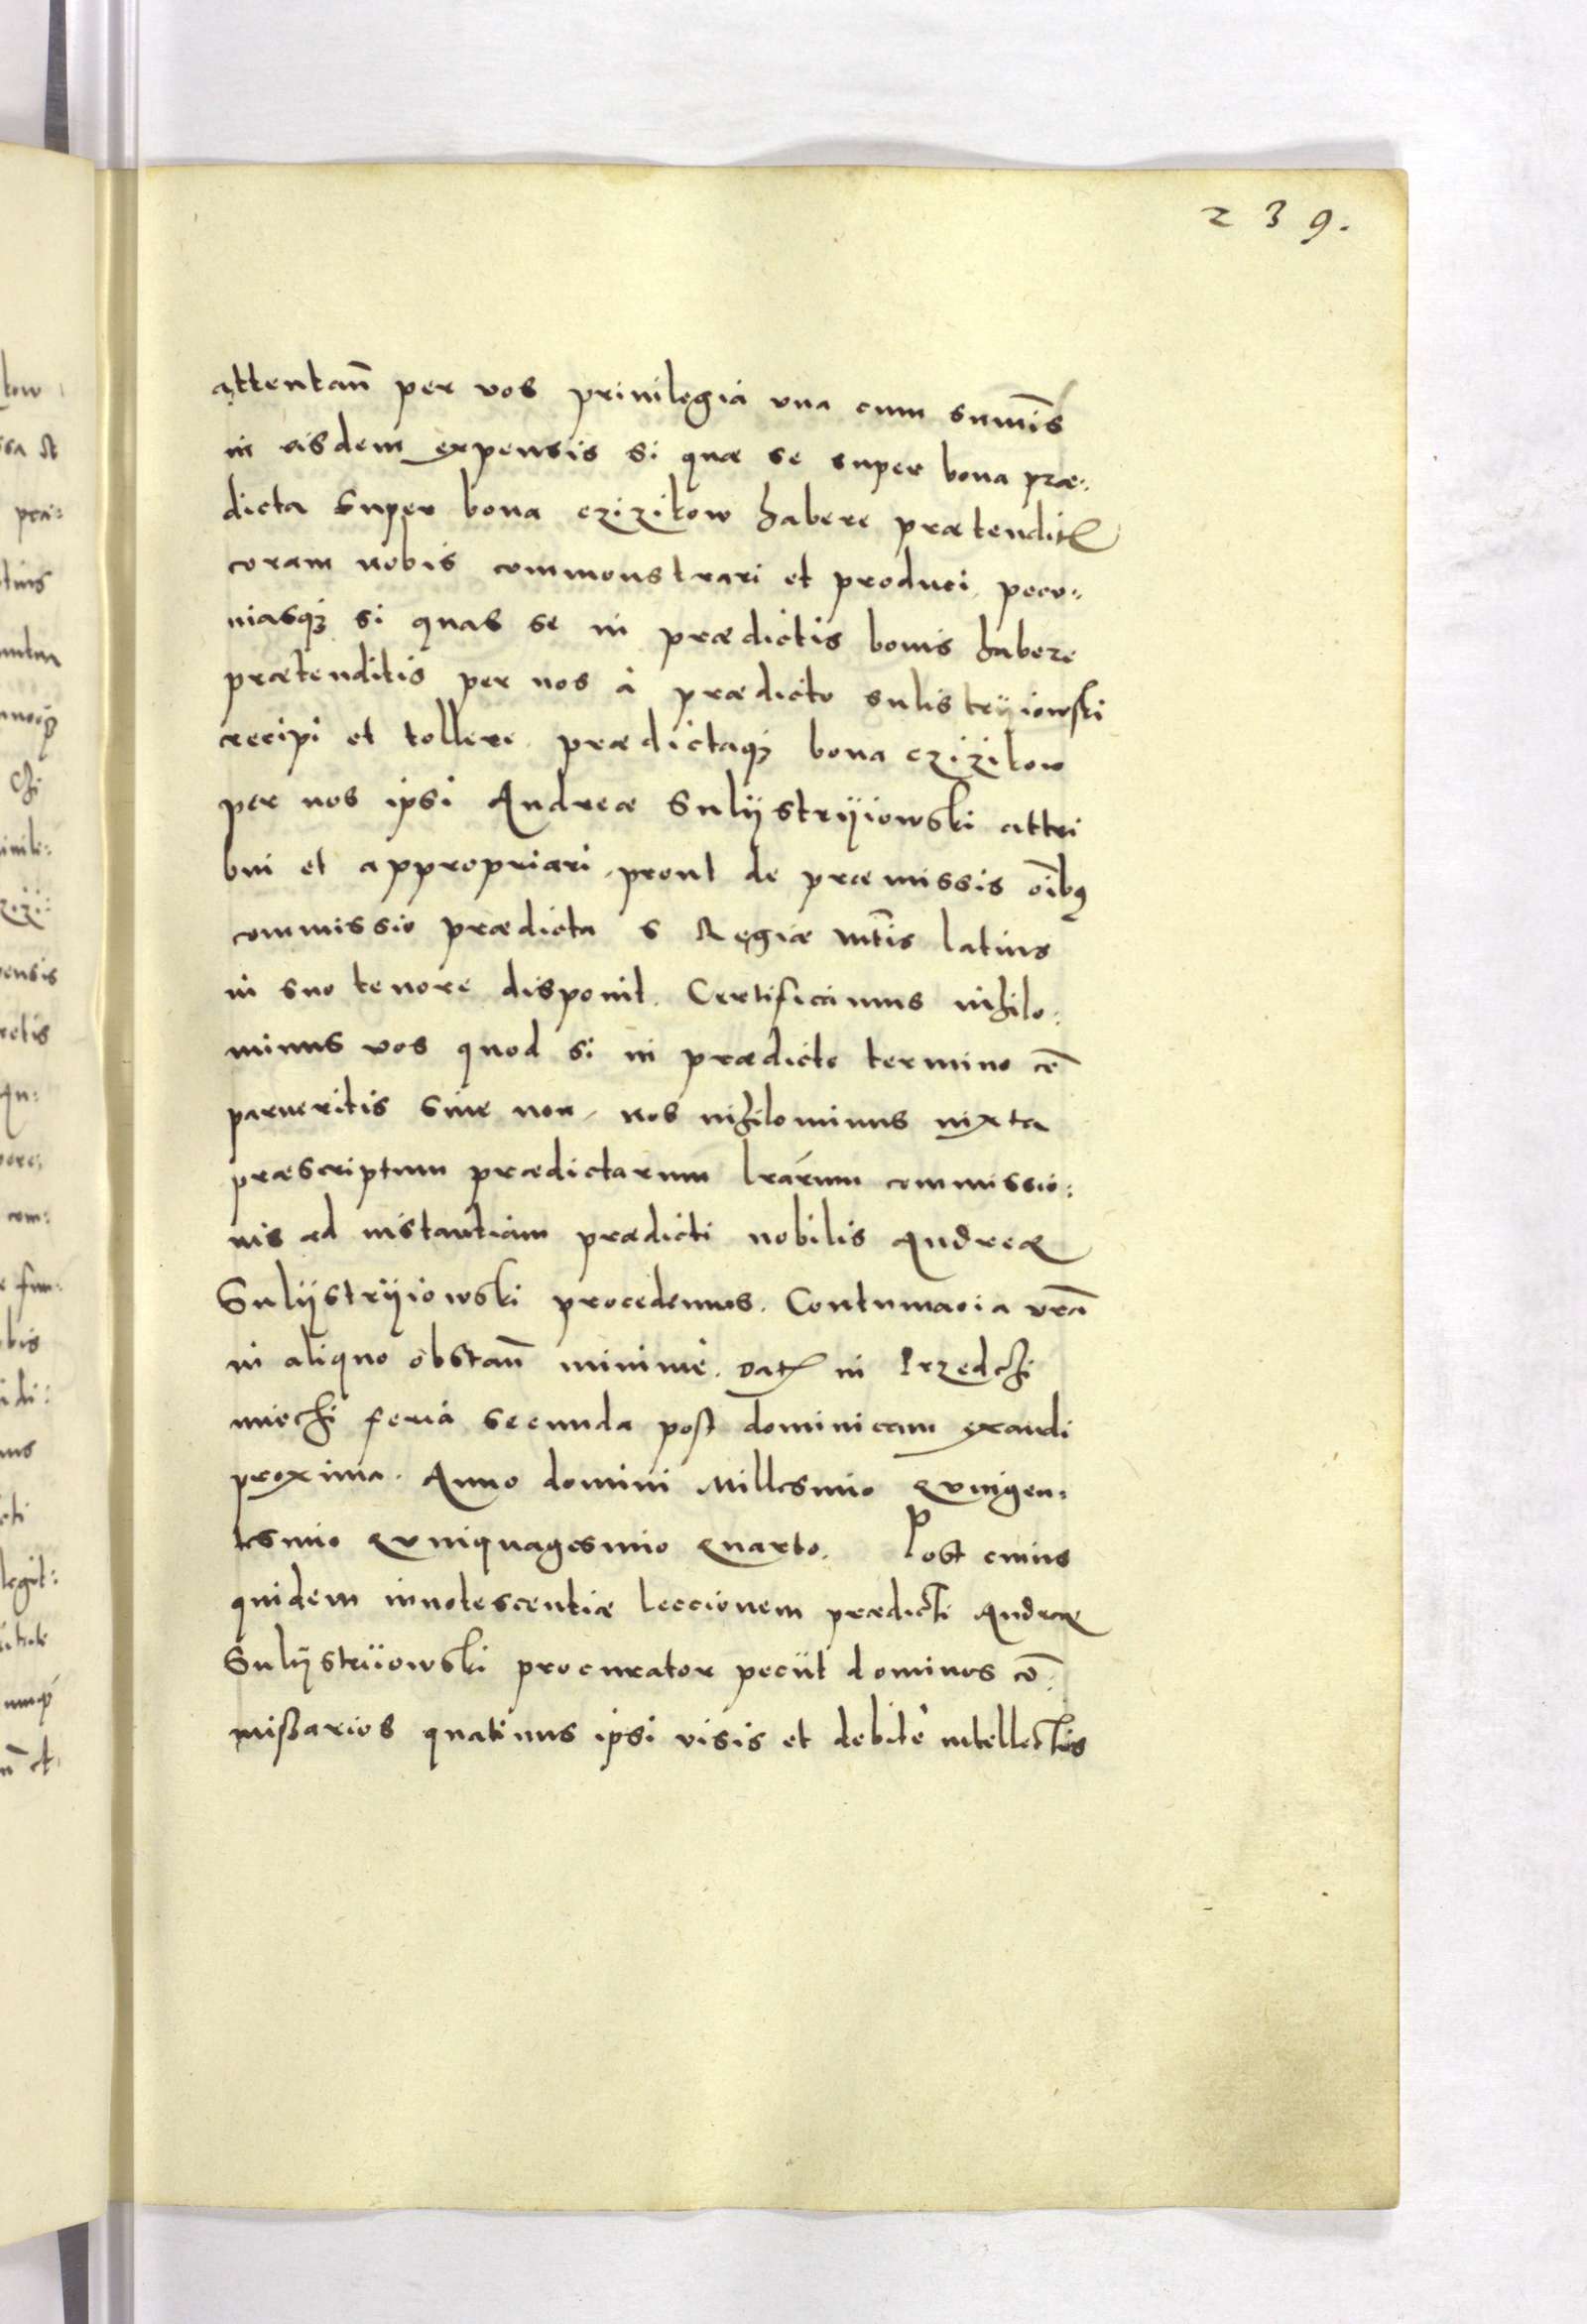 239.
attentañ per vos privilegia vna cum sum̃is
in eisdem expensis si quae se super bona prae:
dicta super bona czizikow habere praetendit
coram nobis commonstrari et produci, pecu:
niasq; si quas se in praedictis bonis habere
praetenditis per nos à praedicto sulistryiowski
recipi et tollere praedictaq; bona czizikow
per nos ipsi Andreae Sulijstryiowski attri
bui et appropriari, prout de praemissis oĩbq
commissio praedicta S Regiae Mt̃is latius
in suo tenore disponit. Certificamus nihilo:
minus vos quod si in praedicto termino cõ
parueritis siue non, nos nihilominus iuxta
praescriptum praedictarum lrãrum commissio:
nis ad instantiam praedicti nobilis Andreae
Sulijstryiowski procedemus. Contumacia vrã
in aliquo obstañ minimè. Dat in Przedrzi
miechi feria secunda post dominicam exaudi
proxima. Anno domini Millesimo Quingen:
tesimo Quinquagesimo Quarto. Post cuius
quidem innotescentiae leccionem praedicti Andreae
Sulijstriiowski procurator peciit dominos cõ:
mißarios quatinus ipsi visis et debitè intellectis